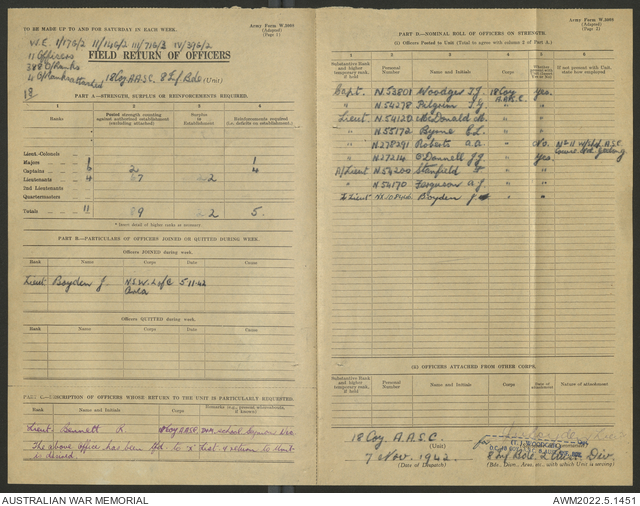 Army Form W.3008
(Adapted)
(Page 1)
TO BE MADE UP TO AND FOR SATURDAY IN EACH WEEK.
W.E. 1/176/2 11/146/2 111/716/3 IV/396/2
11 Officers
FIELD RETURN OF OFFICERS
18 Coy A.A.S.C. 8 Inf Bde (Unit)
PART A—STRENGTH, SURPLUS OR REINFORCEMENTS REQUIRED.
1 2 3 4
Ranks
Posted strength counting against authorized establishment (excluding attached)
Surplus to Establishment
Reinforcements required (i.e. deficits on establishment)
Lieut.-Colonels
Majors 1 1
Captains 6 2 4
Lieutenants 4 7 2
2nd Lieutenants
Quartermasters
Totals 11 9 2 5.
* Insert detail of higher ranks as necessary.
PART B—PARTICULARS OF OFFICERS JOINED OR QUITTED DURING WEEK.
Officers JOINED during week.
Rank Name Corps Date
Lieut Boyden J. N.S.W. L of C Area 5-11-42
Officers QUITTED during week.
Rank Name Corps Date
PART C—DESCRIPTION OF OFFICERS WHOSE RETURN TO THE UNIT IS PARTICULARLY REQUESTED.
Rank Name and Initials Corps
Lieut. Bennett R. 18 Coy AASC. School Seymour Vic
The above officer has been tfd. to "X" List & return to Unit
is desired.
Army Form W.3008
(Adapted)
(Page 2)
PART D—NOMINAL ROLL OF OFFICERS ON STRENGTH.
(i) Officers Posted to Unit (Total to agree with column 2 of Part A.)
1 2 3 4 5 6
Substantive Rank and higher temporary rank, if held
Personal Number
Name and Initials
Corps
If not present with Unit, state how employed
Capt. N53801 Woodger T.J. 18 Coy A.A.S.C. Yes.
" N54278 Pilgrim J.G. " "
Lieut. N54120 McDonald A. " "
" N55172 Byrne E.L. " "
" N278291 Roberts A.A. " No.
" N27214 O'Donnell J.J. " Yes.
N54200 Stanfield " "
" N54170 Ferguson A.J. " "
Boyden J. " "
(ii) OFFICERS ATTACHED FROM OTHER CORPS.
Substantive Rank and higher temporary rank, if held
Personal Number
Name and Initials
Corps
Date of attachment
Nature of attachment
18 Coy. A.A.S.C.
(Unit)
7 Nov. 1942.
(Date of Despatch)
for
8 Inf Bde. 2 Aust. Div.
(Bde., Divn., Area, etc., with which Unit is serving)
AUSTRALIAN WAR MEMORIAL
AWM2022.5.1451